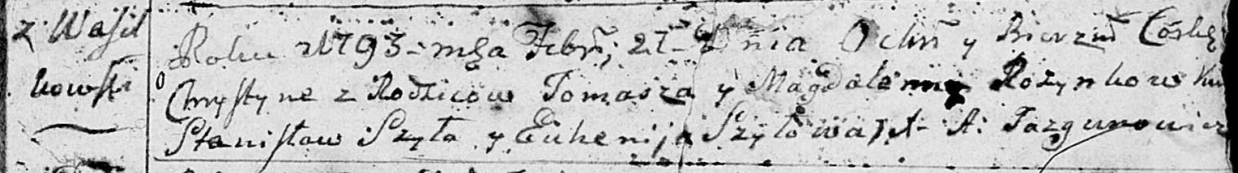 z Wasil
kowsti
Roku 1793 msa Febr; 27 Dnia Ochrł y Bierzm Córkę
Chrystyne z Rodzicow Tomasza y Magdaleny Rozynkow
Stanisław Szyła y Euhenija Szyłowa A: Jazgunowicz